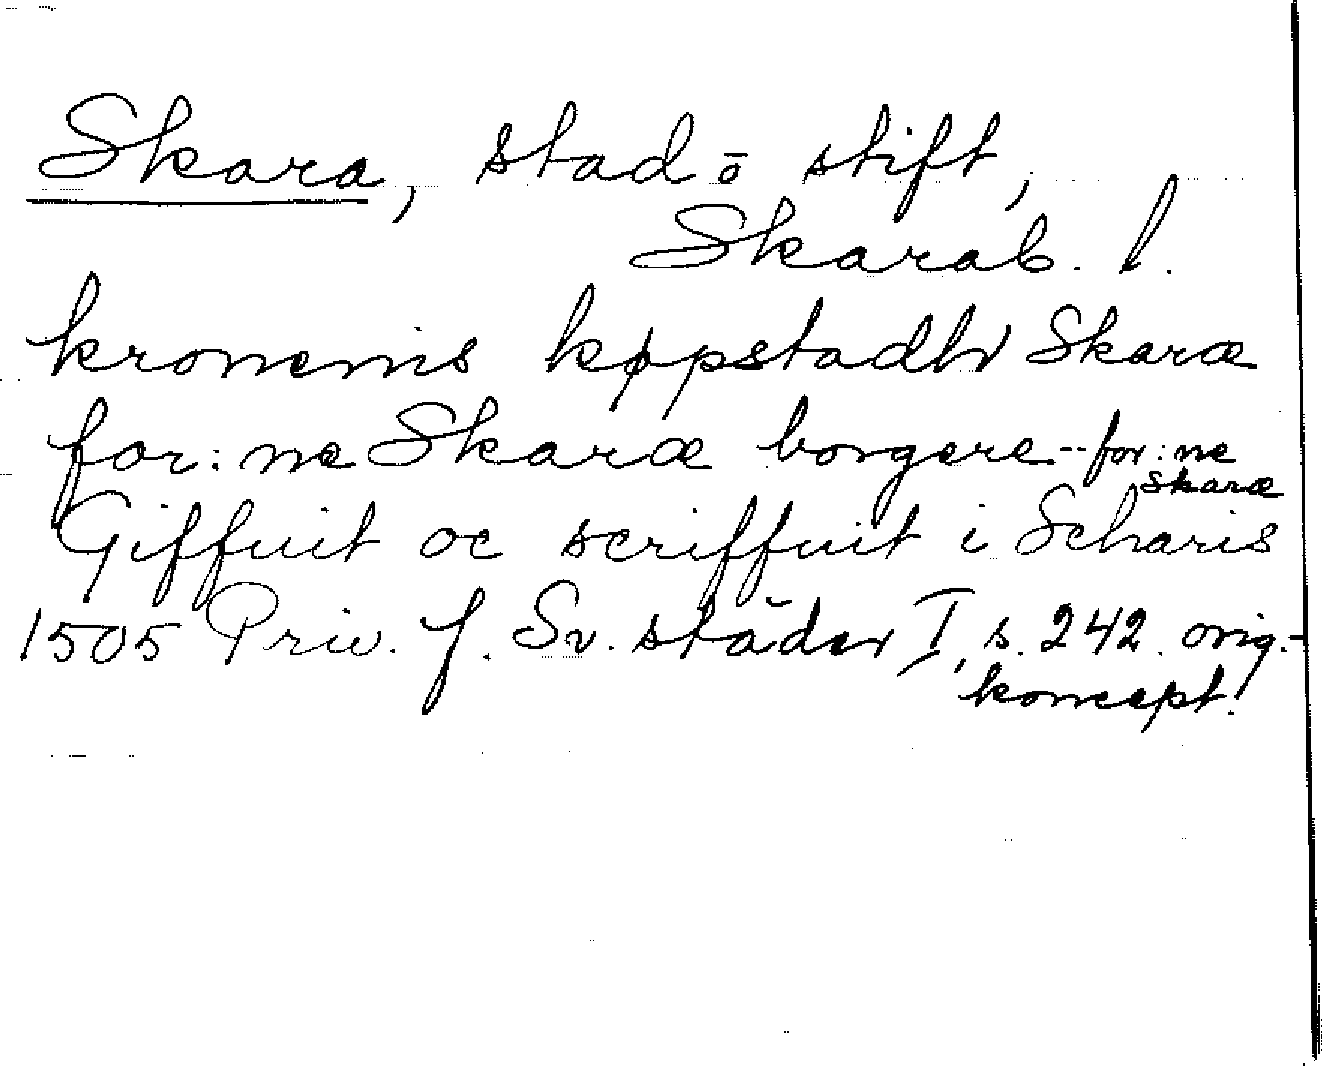 Skara, stad o stift,
Skarab. l.
kronennis køpstadh Skaræ
for: ne Skaræ borgere -- for: ne
Skaræ
Giffuit oc scriffuit i Scharis
1505 Priv. f. Sv. städer I, s. 242. orig.-
koncept.